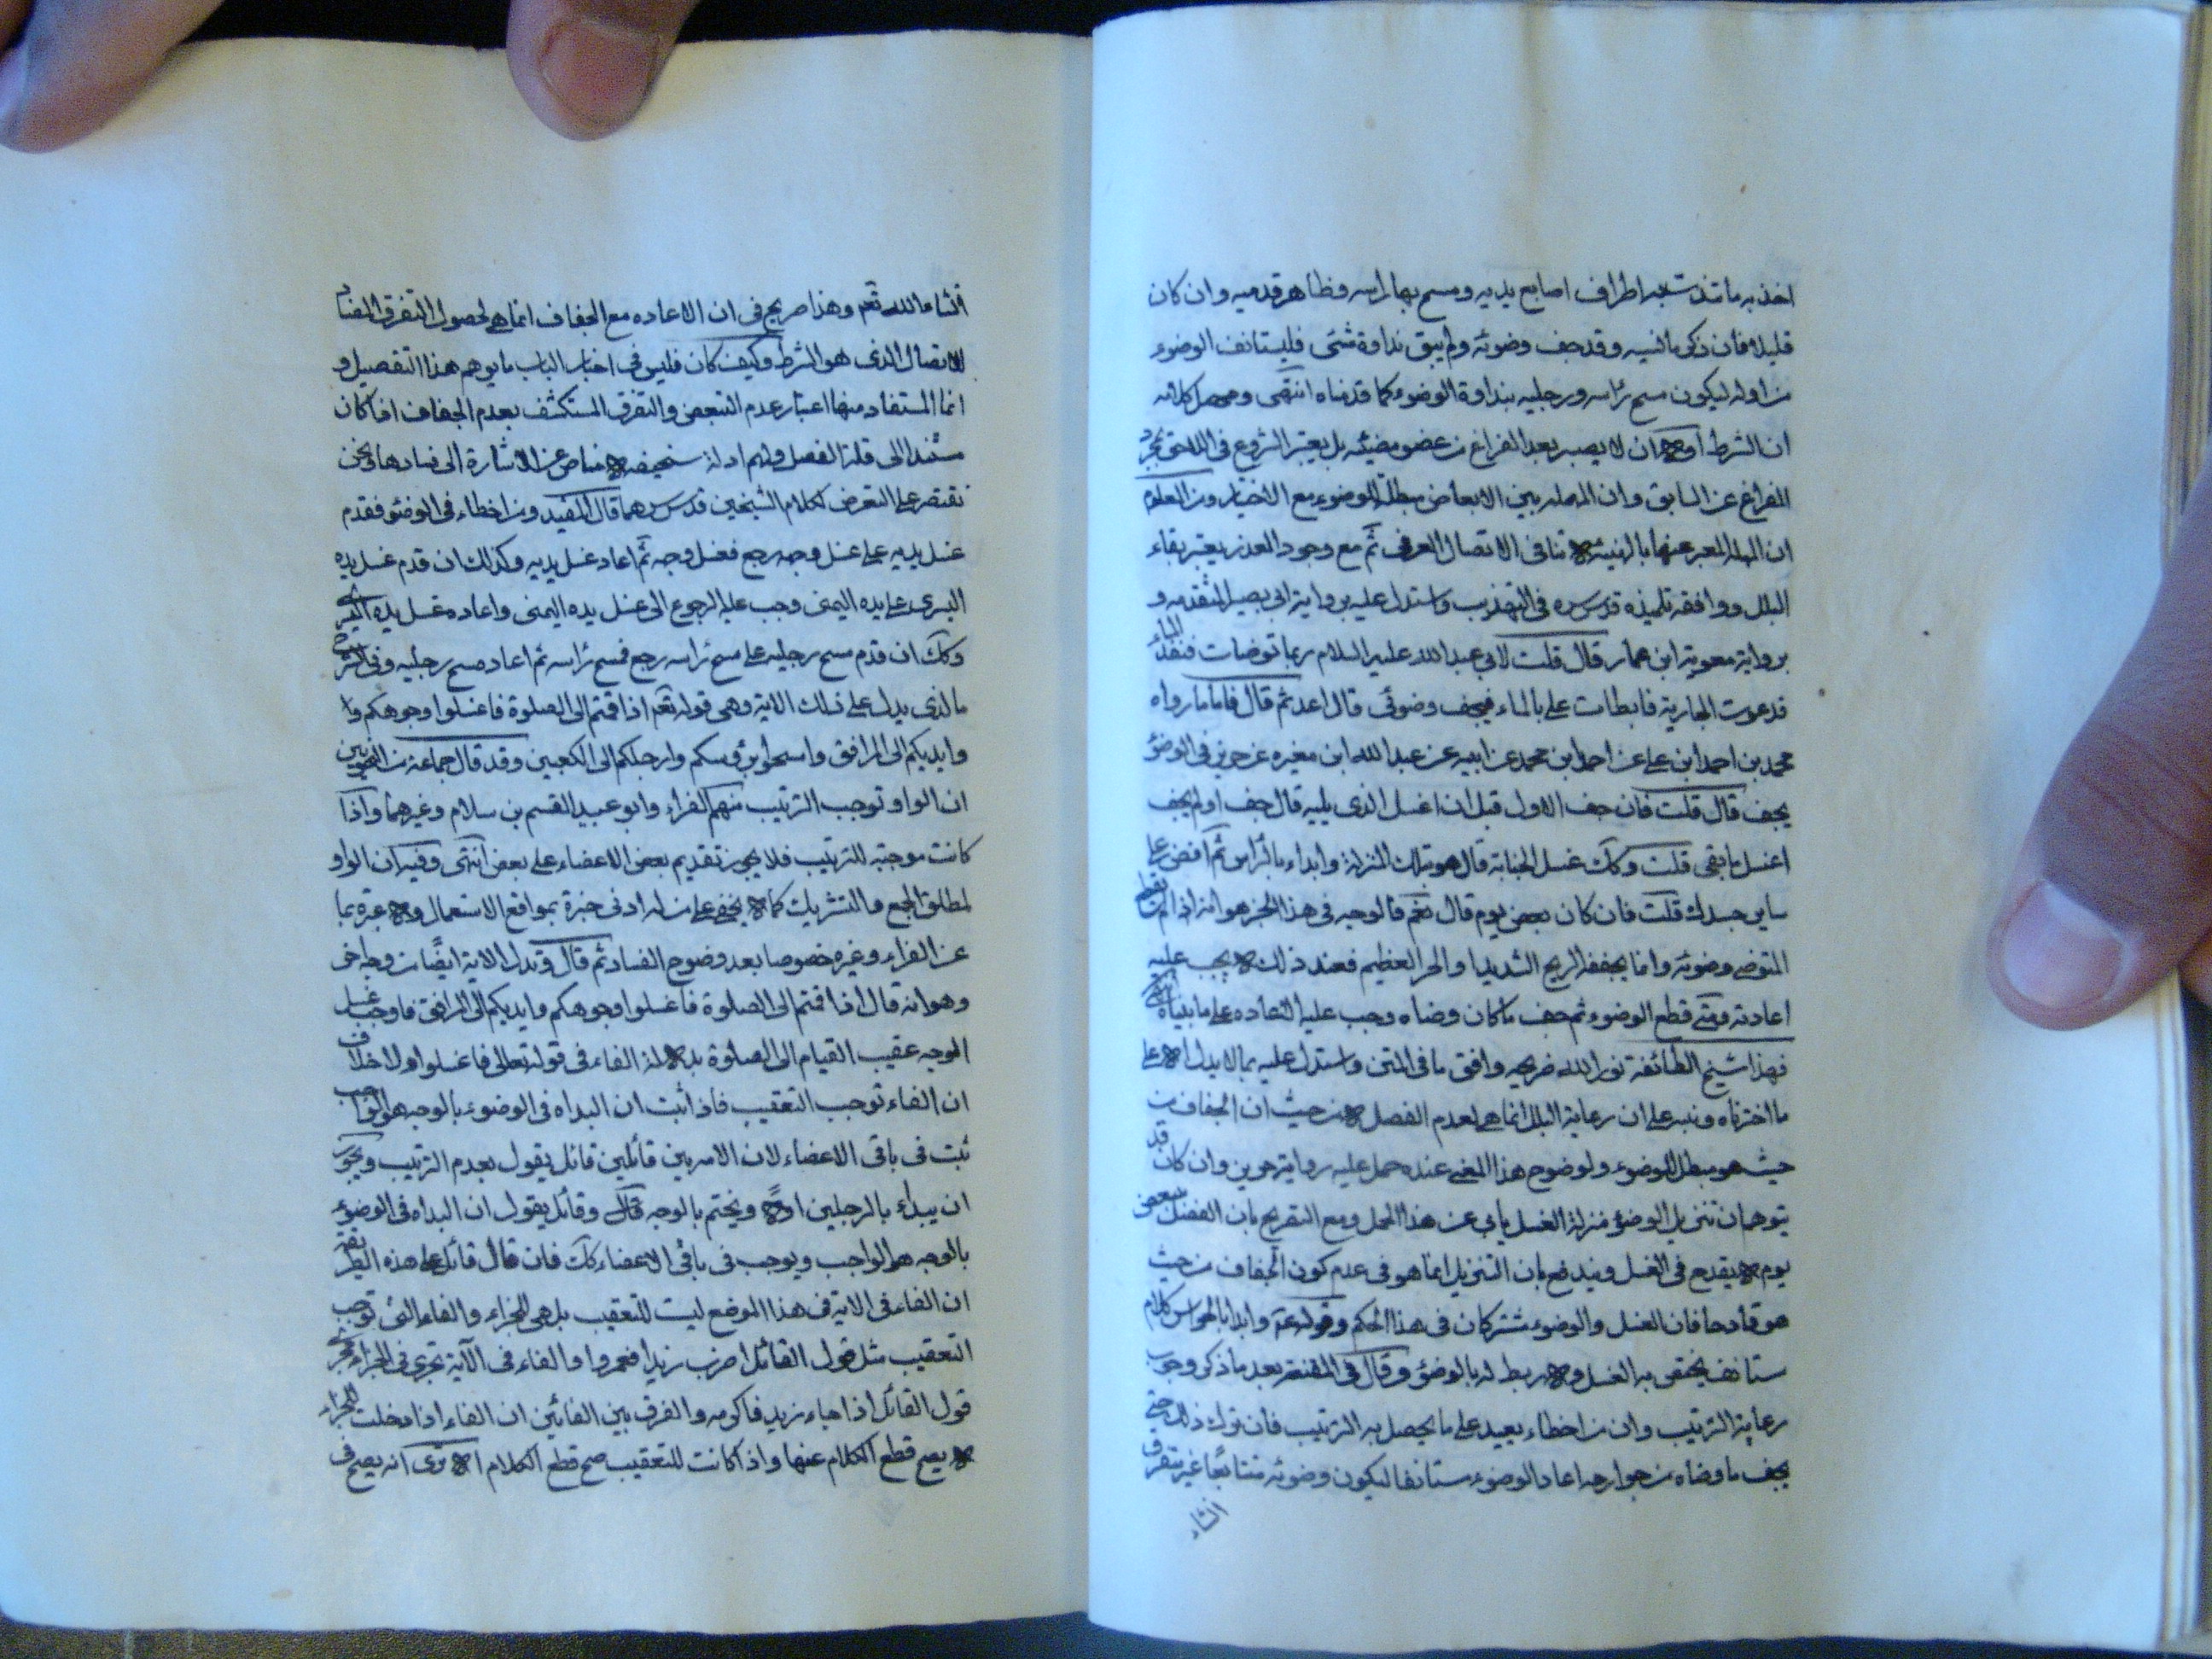 اخذ به ما تندت به اطراف اصابع يديه ومسح بها راسه وظاهر قدميه وان كان
قليلا فان ذكر ما نسيه وقد جف وضوئه ولم يبق نداوة شئ فليستانف الوضوء
من اوله ليكون مسح راسه ورجليه بنداوة الوضوء كما قدمناه انتهى ومحصل كلامه
ان الشرط اولا ان لا يصبر بعد الفراغ من عضو هنيئه بل يعتبر الشروع في اللاحق بمجرد
الفراغ عن السابق وان المهلة بين الابعاض مبطلة للوضوء مع الاختيار ومن المعلوم
ان المهلة المعبر عنها بالهنيئه لا تنافى الاتصال العرفى ثم مع وجود العذر يعتبر بقاء
البلل ووافقه تلميذه قدس سره في التهذيب واستدل عليه برواية ابى بصير المتقدمه و
برواية معوية ابن عمار قال قلت لابي عبد الله عليه السلام ربما توضات فنفد الماء
فدعوت الجارية فابطات على بالماء فيجف وضوئى قال اعد ثم قال فاما ما رواه
محمد بن احمد ابن على عن احمد ابن محمد عن ابيه عن عبد الله ابن مغيره عن حريز في الوضوء
يجف قال قلت فان جف الاول قبل ان اغسل الذى يليه قال جف او لم يجف
اغسل ما بقى قلت وكك غسل الجنابة قال هو بتلك المنزلة وابداء بالراس ثم افض على
ساير جسدك قلت فان كان بعض يوم قال نعم فالوجه في هذا الخبر هو انه اذا لم يقطع
المتوضى وضوئه وانما يجففه الريح الشديد او الحر العظيم فعند ذلك لا يجب عليه
اعادته ومتى قطع الوضوء ثم جف ما كان وضاه وجب عليه الاعاده على ما بيناه
فهذا شيخ الطائفة نور الله ضريحه وافق ما في المتن واستدل عليه بما لا يدل الا على
ما اخترناه ونبه على ان رعاية البلل انما هي لعدم الفصل لا من حيث ان الجفاف من
حيث هو مبطل للوضوء ولوضوح هذا المعنى عنده حمل عليه رواية حريز وان كان قد
يتوهم ان تنزيل الوضوء منزلة الغسل يابى عن هذا الحمل ومع التصريح بان الفصل ببعض
يوم لا يقدح في الغسل ويندفع بان التنزيل انما هو في عدم كون الجفاف من حيث
هو قادحا فان الغسل والوضوء مشتركان في هذا الحكم وقوله ع وابدا بالراس كلام
مستانف يختص به الغسل ولا ربط له بالوضوء وقال في المقنعة بعد ما ذكر وجوب
رعاية الترتيب وان من اخطاء يعيد على ما يحصل به الترتيب فان ترك ذلك حتى
يجف ما وضاه من جوارحه اعاد الوضوء مستانفا ليكون وضوئه متتابعا غير متفرق
انشاء
انشاء الله تعم وهذا صريح في ان الاعاده مع الجفاف انما هي لحصول التفرق المضاد
للاتصال الذى هو الشرط وكيف كان فليس في اخبار الباب ما يوهم هذا التفصيل و
انما المستفاد منها اعتبار عدم التبعض والتفرق المستكشف بعدم الجفاف اذا كان
مستندا الى قلة الفصل ولهم ادلة سخيفه لا مناص عن الاشارة الى فسادها ونحن
نقتصر على التعرض لكلام الشيخين قدس سرهما قال المفيد ومن اخطاء في الوضوء فقدم
غسل يديه على غسل وجهه رجع فغسل وجهه ثم اعاد غسل يديه وكذلك ان قدم غسل يده
اليسرى على يده اليمنى وجب عليه الرجوع الى غسل يده اليمنى واعاده غسل يده اليسرى
وكك ان قدم مسح رجليه على مسح راسه رجع فمسح راسه ثم اعاد مسح رجليه وفى الشرح
ما الذى يدل على ذلك الاية وهى قوله تعم اذا قمتم الى الصلوة فاغسلوا وجوهكم
وايديكم الى المرافق وامسحوا برؤسكم وارجلكم الى الكعبين وقد قال جماعة من النحويين
ان الواو توجب الترتيب منهم الفراء وابو عبيد القسم بن سلام وغيرهما واذا
كانت موجبة للترتيب فلا يجوز تقديم بعض الاعضاء على بعض انتهى وفيه ان الواو
لمطلق الجمع والتشريك كما لا يخفى على من له ادنى خبرة بمواقع الاستعمال ولا عبرة بما
عن الفراء وغيره خصوصا بعد وضوح الفساد ثم قال وتدل الاية ايضا من وجه اخر
وهو انه قال اذا قمتم الى الصلوة فاغسلوا وجوهكم وايديكم الى المرافق فاوجب غسل
الوجه عقيب القيام الى الصلوة بدلالة الفاء في قوله تعالى فاغسلوا ولا خلاف
ان الفاء توجب التعقيب فاذا ثبت ان البداه في الوضوء بالوجه هو الواجب
ثبت في باقى الاعضاء لان الامر بين قائلين قائل يقول بعدم الترتيب ويجوز
ان يبداء بالرجلين اولا ويختم بالوجه قال وقائل يقول ان البداه في الوضوء
بالوجه هو الواجب ويوجب في باقى الاعضاء كك فان قال قائل على هذه الطريقة
ان الفاء في الاية في هذا الموضع ليست للتعقيب بل هي للجزاء والفاء التى توجب
التعقيب مثل قول القائل اضرب زيدا فعمروا والفاء في الآية تجرى في الجزاء مجرى
قول القائل اذا جاء زيد فاكرمه والفرق بين الفائين ان الفاء اذا دخلت للجزاء
لا يصح قطع الكلام عنها واذا كانت للتعقيب صح قطع الكلام الا ترى انه يصح في